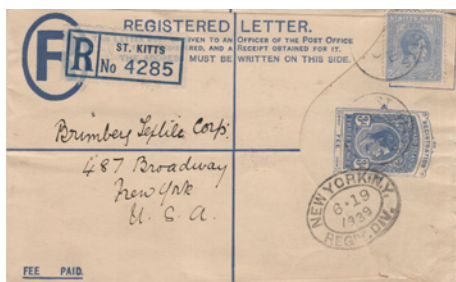 REGISTERED LETTER.
GIVEN TO AN OFFICER OF THE POST OFFICE
AND A RECEIPT OBTAINED FOR IT.
MUST BE WRITTEN ON THIS SIDE.
F
R
ST. KITTS
No 4285
Brimberg Textile Corp.
487 Broadway
New York
U. S. A.
NEW YORK, N.Y.
6-19
1939
REG'Y. DIV.
FEE PAID.